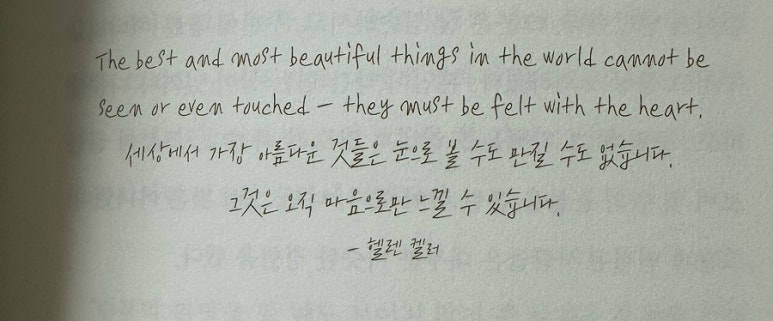 The best and most beautiful things in the world cannot be
seen or even touched — they must be felt with the heart.
세상에서 가장 아름다운 것들은 눈으로 볼 수도 만질 수도 없습니다.
그것은 오직 마음으로만 느낄 수 있습니다.
— 헬렌 켈러